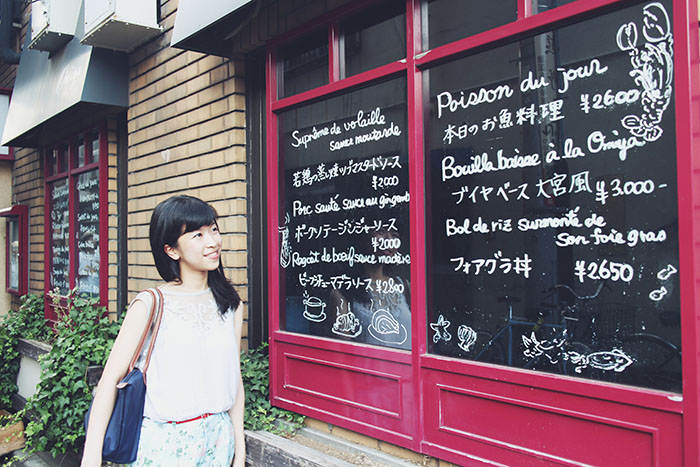 Suprême de volaille
sauce moutarde
若鶏の蒸し焼マスタードソース
¥2000
Porc sauté sauce au gingembre
ポークソテージンジャーソース
¥2000
Ragoût de bœuf sauce madère
ビーフシチューマデラソース ¥2800
Poisson du jour
本日のお魚料理 ¥2600
Bouillabaisse à la Omiya
ブイヤベース大宮風 ¥3.000-
Bol de riz surmonté de
Son foie gras
フォアグラ丼 ¥2650